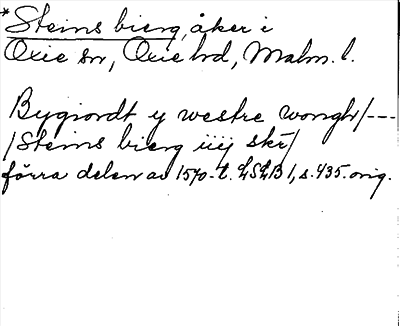 *Steins bierg, åker i
Oxie sn, Oxie hd, Malm. l.
Bygiordt y westre wongh/---
/Steins bierg iiij skr/
förra delen av 1570-t. LSLB 1, s. 435. orig.